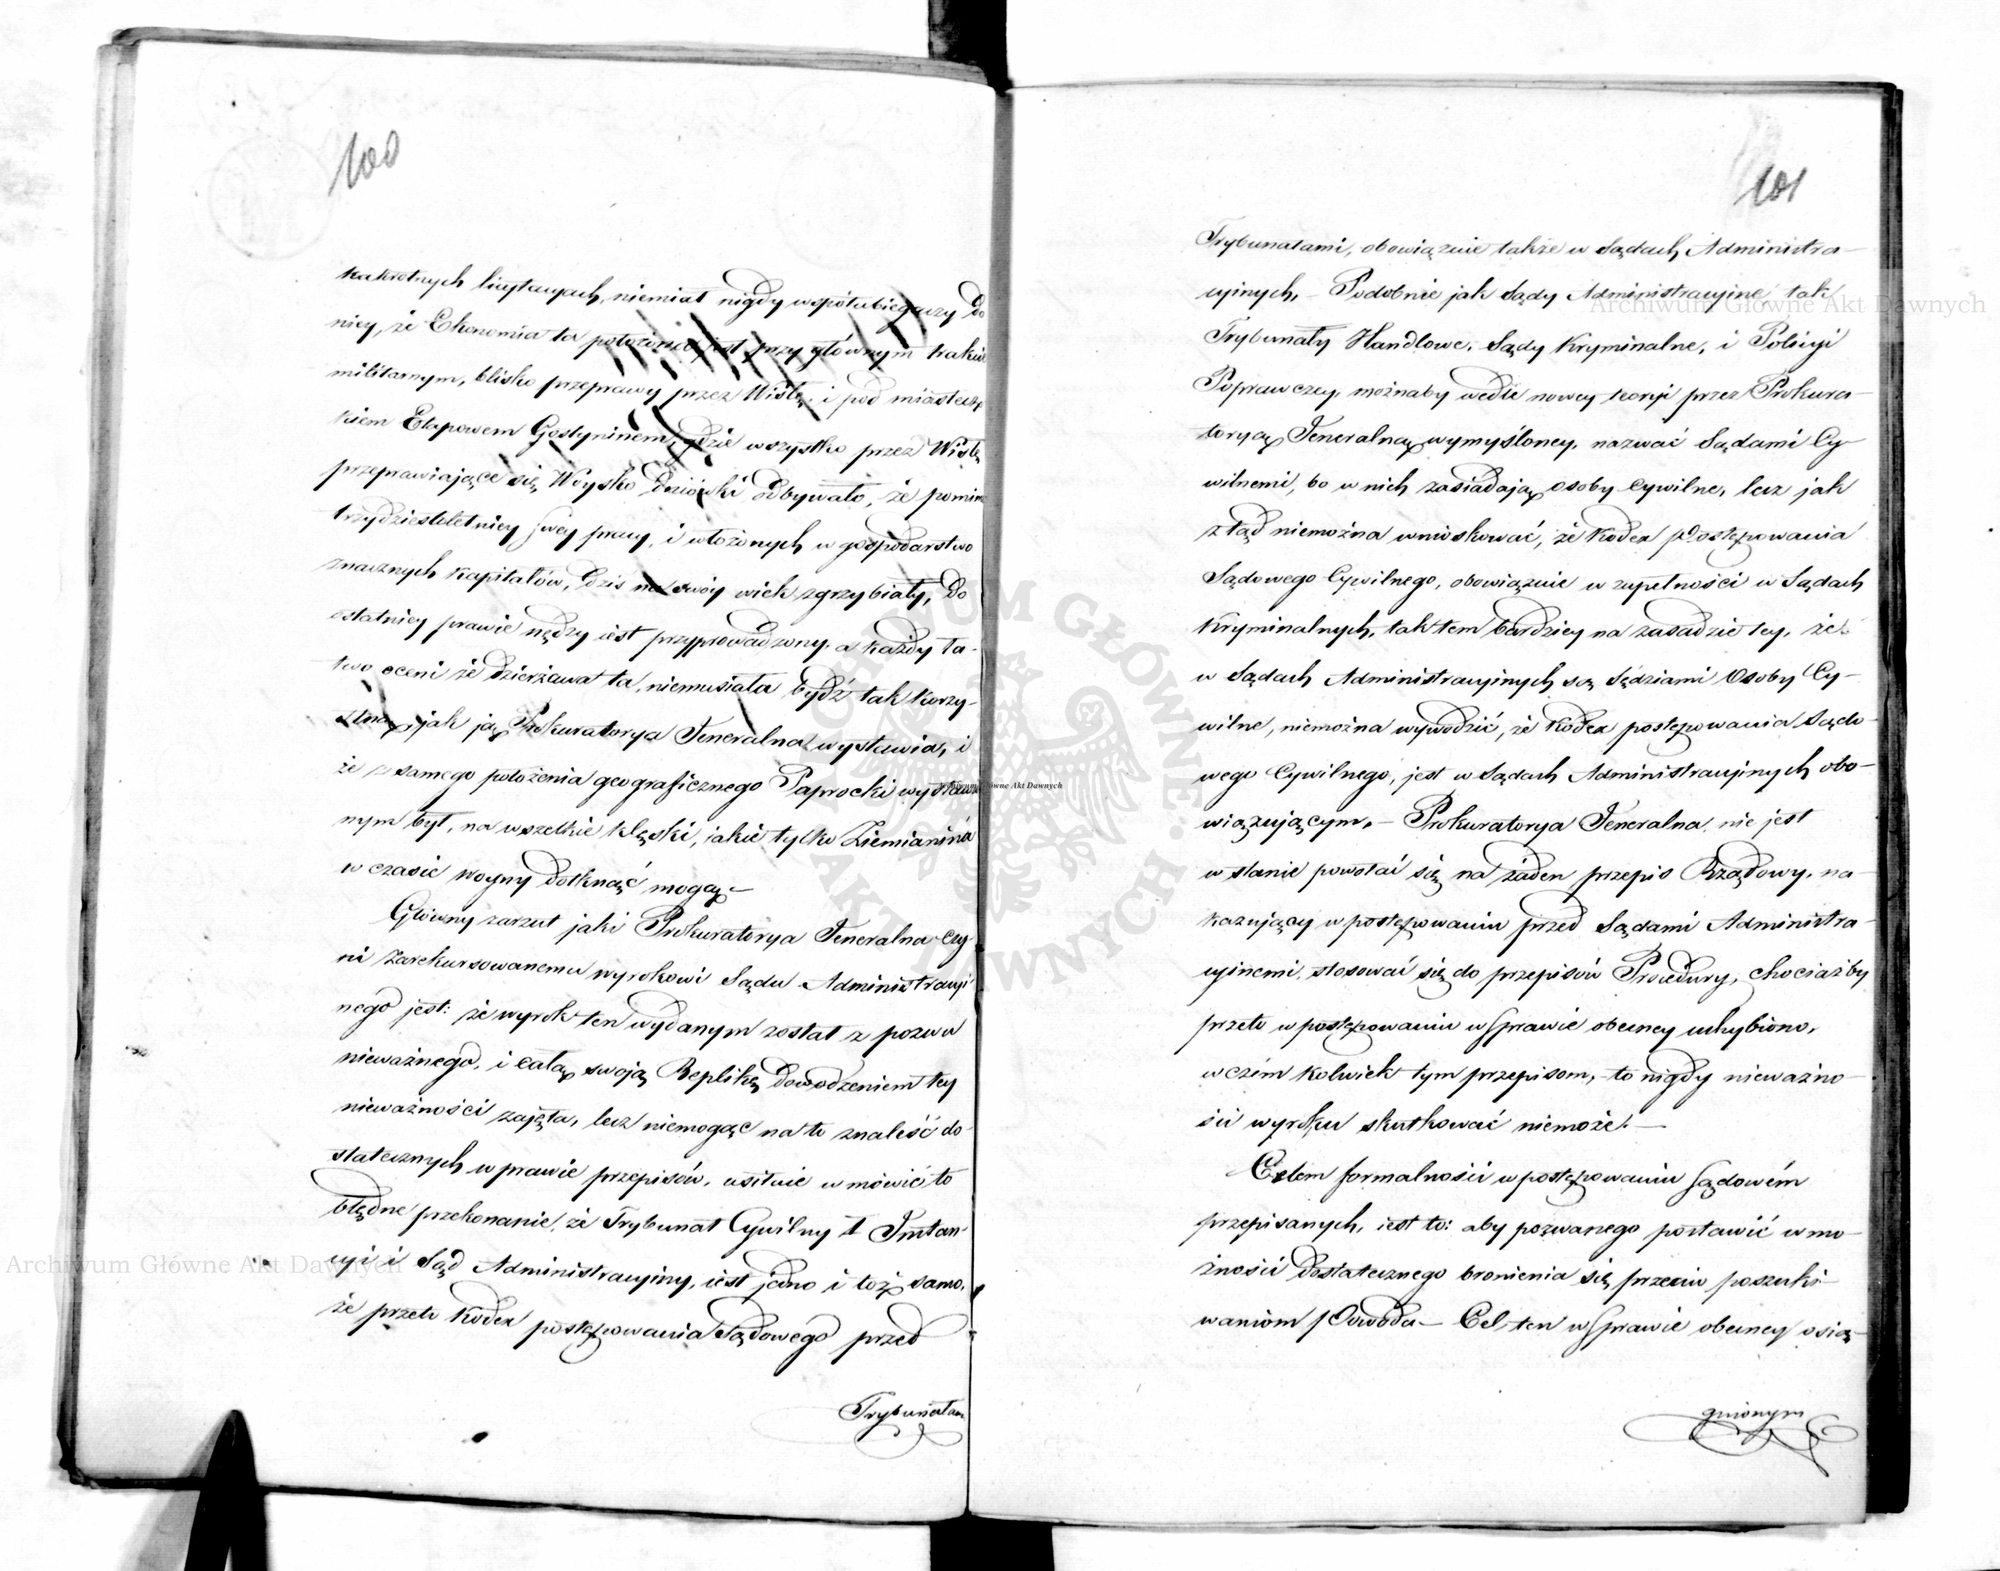 100
kakrotnych licytacyach, niemiał nigdy wspołubiegaczy do
niey, że Ekonomia ta położona jest przy głównym trakcie
militarnym, blisko przeprawy przez Wisłę, i pod miastecz
kiem Etapowem Gostyninem, gdzie wszystko przez Wisłę
przeprawiaiące się Woysko dziónki odbywało, że pomimo
trzydziestoletniey swey pracy, i włożonych w gospodarstwo
znacznych kapitałów, dziś na swóy wiek zgrzybiały, do
ostatniey prawie nędzy iest przyprowadzony, a każdy ła-
two oceni że dzierżawa ta, niemusiała bydź tak korzy-
stną, jak ją Prokuratorya Jeneralna wystawia, i
że z samego położenia geograficznego Paprocki wystawio
nym był, na wszelkie klęski, iakie tylko Ziemianina
w czasie woyny dotknąć mogą.—
Główny zarzut jaki Prokuratorya Jeneralna czy
ni zarekursowanemu wyrokowi Sądu Administracyi
nego jest: że wyrok ten wydanym został z pozwu
nieważnego, i całą swoją Replikę dowodzeniem tey
nieważności zajęła, lecz niemogąc na to znaleść do
statecznych w prawie przepisów, usiłuie wmówić to
błędne przekonanie, że Trybunał Cywilny I Instan
cyi i Sąd Administracyiny, iest jedno i toż samo,
że przeto Kodex postępowania Sądowego przed
Trybunałam
101
Trybunałami, obowiązuie także w Sądach Administra—
cyinych,— Podobnie jak Sądy Administracyine tak
Trybunały Handlowe, Sądy Kryminalne, i Policyi
Poprawczey, możnaby wedle nowey teoryi przez Prokura—
toryą Jeneralną wymyśloney, nazwać Sądami Cy
wilnemi, bo w nich zasiadają osoby Cywilne, lecz jak
z tąd niemożna wnioskować, że Kodex Postępowania
Sądowego Cywilnego, obowiązuie w zupełności w Sądach
Kryminalnych, tak tem bardziey na zasadzie tey, że
w Sądach Administracyinych są Sędziami Osoby Cy—
wilne, niemożna wywodzić, że Kodex postępowania Sądo-
wego Cywilnego, jest w Sądach Administracyinych obo-
wiązuiącym.— Prokuratorya Jeneralna, nie jest
w stanie powołać się na żaden przepis Rządowy, na
kazuiący w postępowaniu przed Sądami Administra—
cyinemi, stosować się do przepisów Procedury, chociażby
przeto w postępowaniu w sprawie obecney uchybiono,
w czém kolwiek tym przepisom, to nigdy nieważno—
ści wyroku skutkować niemoże.—
Celem formalności w postępowaniu Sądowém
przepisanych, iest to: aby pozwanego postawić w mo—
żności dostatecznego bronienia się przeciw poszuki—
waniom Powoda— Cel ten w sprawie obecney osią—
gnionym
Archiwum Główne Akt Dawnych
Archiwum Główne Akt Dawnych
Archiwum Główne Akt Dawnych
ARCHIWUM GŁÓWNE AKT DAWNYCH